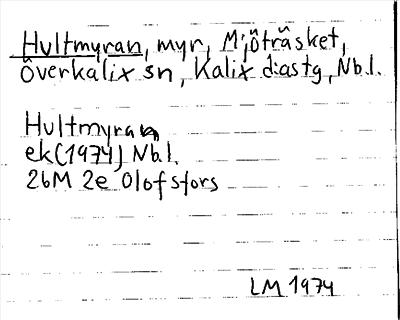 Hultmyran, myr, Mjöträsket,
Överkalix sn, Kalix d:astg, Nb.l.
Hultmyran
ek(1974) Nb.l.
26M 2e Olofsfors
LM 1974